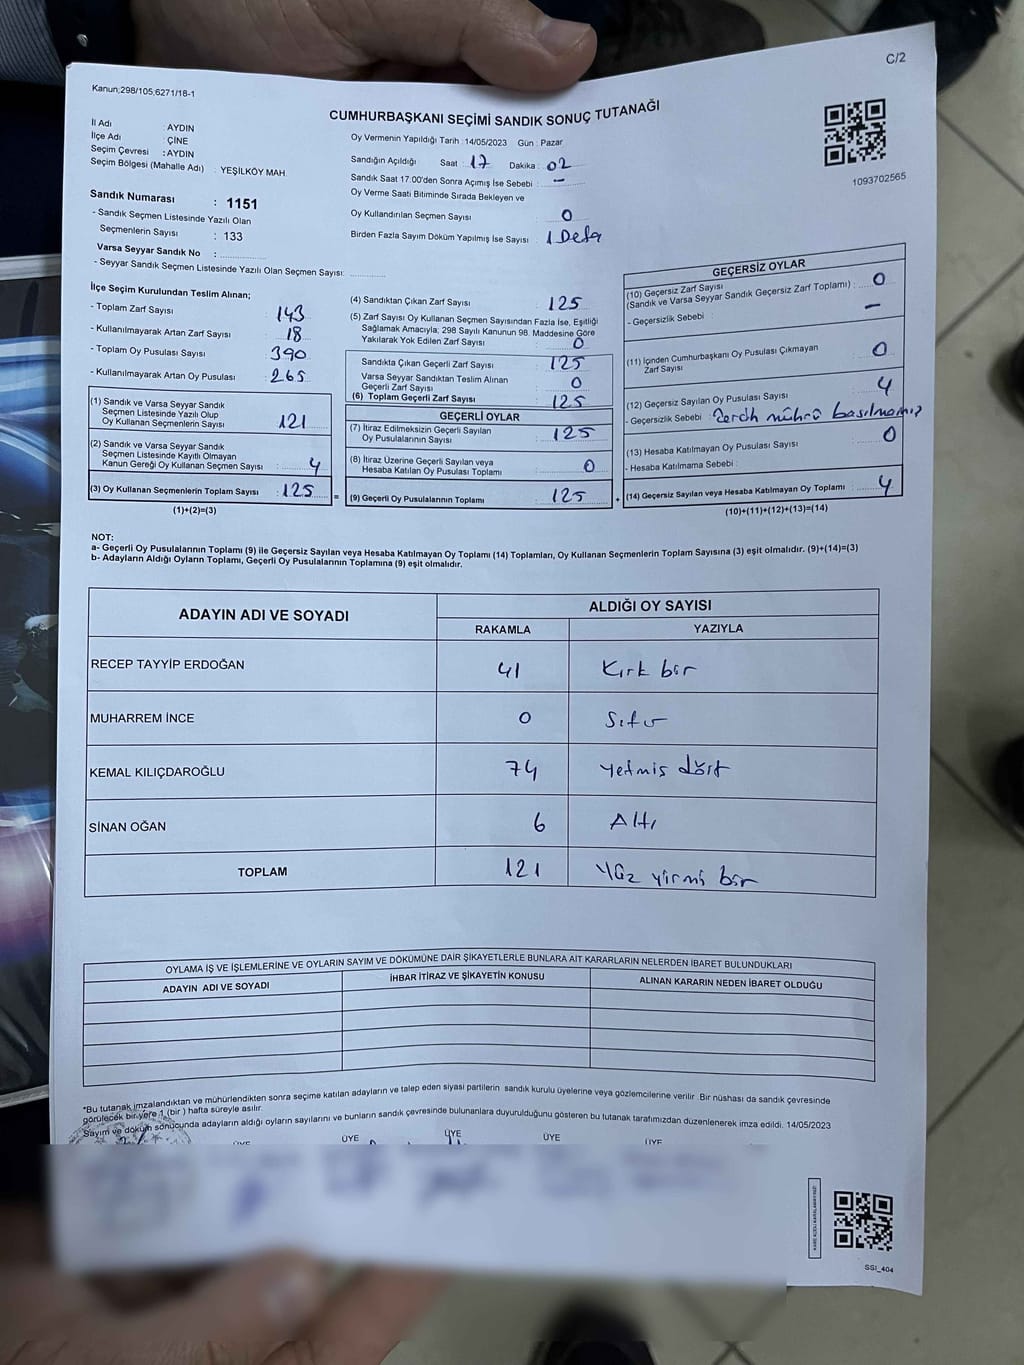 C/2
Kanun;298/105,6271/18-1
CUMHURBAŞKANI SEÇİMİ SANDIK SONUÇ TUTANAĞI
1093702565
İl Adı : AYDIN
İlçe Adı : ÇİNE
Seçim Çevresi : AYDIN
Seçim Bölgesi (Mahalle Adı) : YEŞİLKÖY MAH.
Sandık Numarası : 1151
- Sandık Seçmen Listesinde Yazılı Olan
Seçmenlerin Sayısı : 133
Varsa Seyyar Sandık No :
- Seyyar Sandık Seçmen Listesinde Yazılı Olan Seçmen Sayısı:
Oy Vermenin Yapıldığı Tarih : 14/05/2023 Gün : Pazar
Sandığın Açıldığı Saat : 17 Dakika : 02
Sandık Saat 17:00'den Sonra Açımış İse Sebebi : -
Oy Verme Saati Bitiminde Sırada Bekleyen ve
Oy Kullandırılan Seçmen Sayısı : 0
Birden Fazla Sayım Döküm Yapılmış İse Sayısı : 1 Defa
İlçe Seçim Kurulundan Teslim Alınan;
- Toplam Zarf Sayısı : 143
- Kullanılmayarak Artan Zarf Sayısı : 18
- Toplam Oy Pusulası Sayısı : 390
- Kullanılmayarak Artan Oy Pusulası : 265
(1) Sandık ve Varsa Seyyar Sandık
Seçmen Listesinde Yazılı Olup
Oy Kullanan Seçmenlerin Sayısı : 121
(2) Sandık ve Varsa Seyyar Sandık
Seçmen Listesinde Kayıtlı Olmayan
Kanun Gereği Oy Kullanan Seçmen Sayısı : 4
(3) Oy Kullanan Seçmenlerin Toplam Sayısı : 125 =
(1)+(2)=(3)
(4) Sandıktan Çıkan Zarf Sayısı : 125
(5) Zarf Sayısı Oy Kullanan Seçmen Sayısından Fazla İse, Eşitliği
Sağlamak Amacıyla; 298 Sayılı Kanunun 98. Maddesine Göre
Yakılarak Yok Edilen Zarf Sayısı : 0
Sandıkta Çıkan Geçerli Zarf Sayısı : 125
Varsa Seyyar Sandıktan Teslim Alınan
Geçerli Zarf Sayısı : 0
(6) Toplam Geçerli Zarf Sayısı : 125
GEÇERLİ OYLAR
(7) İtiraz Edilmeksizin Geçerli Sayılan
Oy Pusulalarının Sayısı : 125
(8) İtiraz Üzerine Geçerli Sayılan veya
Hesaba Katılan Oy Pusulası Toplamı : 0
(9) Geçerli Oy Pusulalarının Toplamı : 125 +
GEÇERSİZ OYLAR
(10) Geçersiz Zarf Sayısı
(Sandık ve Varsa Seyyar Sandık Geçersiz Zarf Toplamı) : 0
- Geçersizlik Sebebi : -
(11) İçinden Cumhurbaşkanı Oy Pusulası Çıkmayan
Zarf Sayısı : 0
(12) Geçersiz Sayılan Oy Pusulası Sayısı : 4
- Geçersizlik Sebebi : Tercih mührü basılmamış
(13) Hesaba Katılmayan Oy Pusulası Sayısı : 0
- Hesaba Katılmama Sebebi :
(14) Geçersiz Sayılan veya Hesaba Katılmayan Oy Toplamı : 4
(10)+(11)+(12)+(13)=(14)
NOT:
a- Geçerli Oy Pusulalarının Toplamı (9) ile Geçersiz Sayılan veya Hesaba Katılmayan Oy Toplamı (14) Toplamları, Oy Kullanan Seçmenlerin Toplam Sayısına (3) eşit olmalıdır. (9)+(14)=(3)
b- Adayların Aldığı Oyların Toplamı, Geçerli Oy Pusulalarının Toplamına (9) eşit olmalıdır.
ADAYIN ADI VE SOYADI ALDIĞI OY SAYISI
RAKAMLA YAZIYLA
RECEP TAYYİP ERDOĞAN 41 Kırk bir
MUHARREM İNCE 0 Sıfır
KEMAL KILIÇDAROĞLU 74 yetmiş dört
SİNAN OĞAN 6 Altı
TOPLAM 121 Yüz yirmi bir
OYLAMA İŞ VE İŞLEMLERİNE VE OYLARIN SAYIM VE DÖKÜMÜNE DAİR ŞİKAYETLERLE BUNLARA AİT KARARLARIN NELERDEN İBARET BULUNDUKLARI
ADAYIN ADI VE SOYADI İHBAR İTİRAZ VE ŞİKAYETİN KONUSU ALINAN KARARIN NEDEN İBARET OLDUĞU
*Bu tutanak imzalandıktan ve mühürlendikten sonra seçime katılan adayların ve talep eden siyasi partilerin sandık kurulu üyelerine veya gözlemcilerine verilir. Bir nüshası da sandık çevresinde
görülecek bir yere 1 (bir ) hafta süreyle asılır.
Sayım ve döküm sonucunda adayların aldığı oyların sayılarını ve bunların sandık çevresinde bulunanlara duyurulduğunu gösteren bu tutanak tarafımızdan düzenlenerek imza edildi. 14/05/2023
ÜYE ÜYE ÜYE ÜYE ÜYE
SSI_404